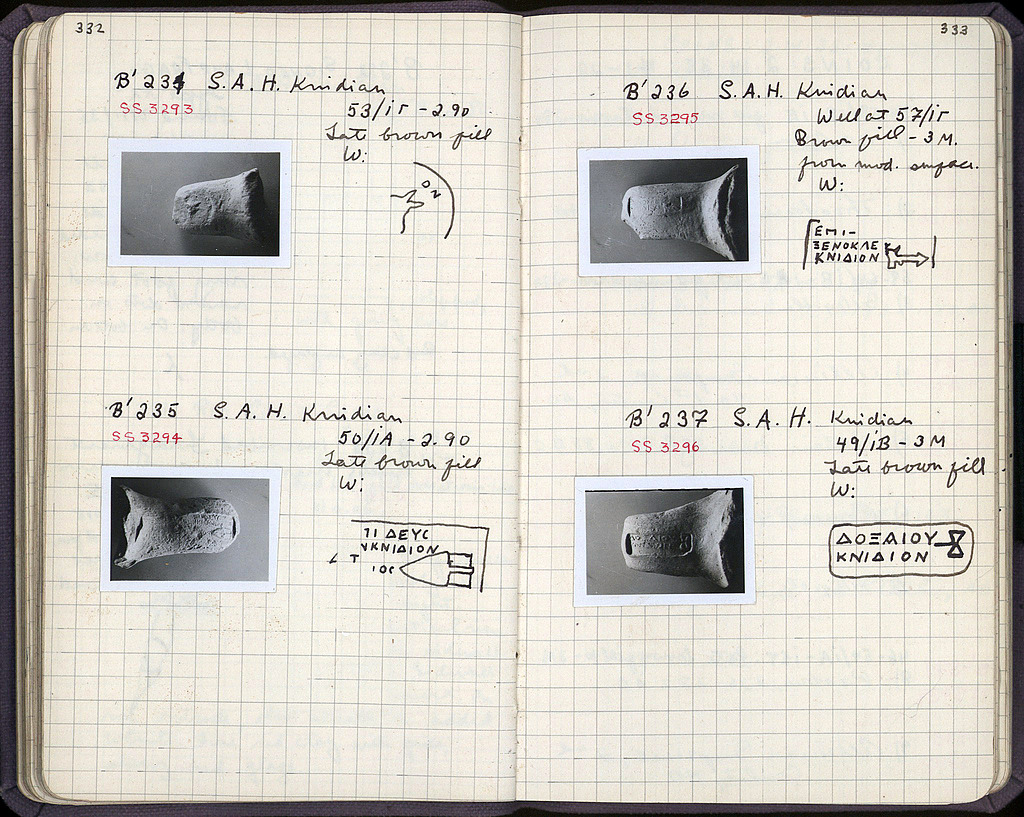 332
B' 234 S.A.H. Knidian
SS 3293
53/ΙΓ - 2.90
Late brown fill
W:
B' 235 S.A.H. Knidian
SS 3294
50/ΙΑ - 2.90
Late brown fill
W:
ΔΕΥΣ
ΚΝΙΔΙΟΝ
333
B' 236 S.A.H. Knidian
SS 3295
Well at 57/ΙΓ
Brown fill - 3 M.
from mod. surface.
W:
ΕΠΙ-
ΞΕΝΟΚΛΕ
ΚΝΙΔΙΟΝ
B' 237 S.A.H. Knidian
SS 3296
49/ΙΒ - 3 M
Late brown fill
W:
ΔΟΞΑΙΟΥ
ΚΝΙΔΙΟΝ